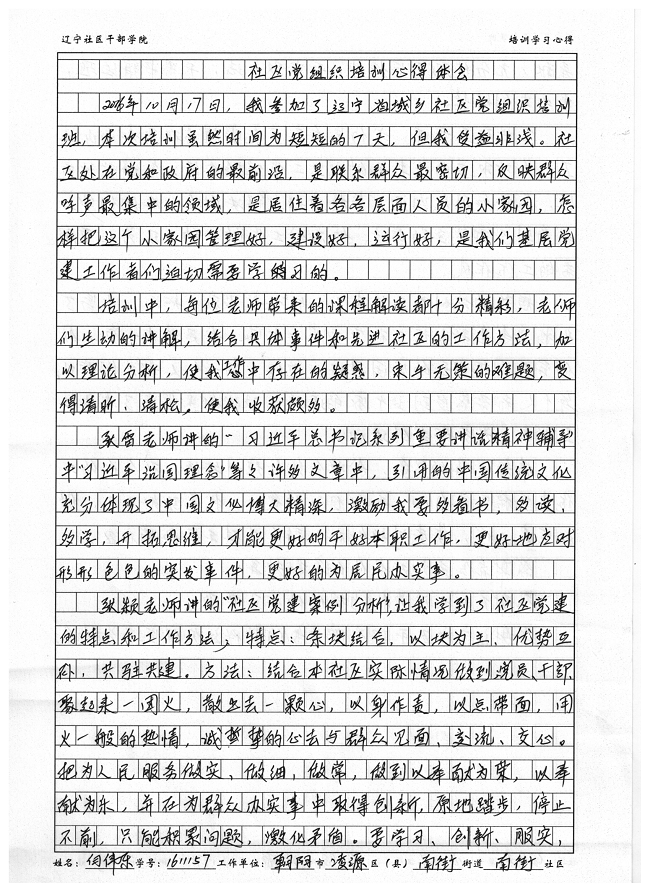 辽宁社区干部学院 培训学习心得
社区党组织培训心得体会
2016年10月17日，我参加了辽宁省城乡社区党组织培训
班，本次培训虽然时间为短短的7天，但我受益非浅。社
区处在党和政府的最前沿，是联系群众最密切，反映群众
呼声最集中的领域，是居住着各各层面人员的小家园，怎
样把这个小家园管理好，建设好，运行好，是我们基层党
建工作者们迫切需要学习的。
培训中，每位老师带来的课程解读都十分精彩，老师
们生动的讲解，结合具体事件和先进社区的工作方法，加
以理论分析，使我工作中存在的疑惑，束手无策的难题，变
得清晰、清松。使我收获颇多。
老师讲的"习近平总书记系列重要讲话精神辅导"
中"习近平治国理念"等等许多文章中，引用的中国传统文化
充分体现了中国文化博大精深，激励我要多看书，多读、
多学，开拓思维，才能更好的干好本职工作，更好地应对
形形色色的突发事件，更好的为居民办实事。
张颖老师讲的"社区党建案例分析"，让我学到了社区党建
的特点和工作方法，特点：条块结合，以块为主、优势互
补，共驻共建。方法：结合本社区实际情况做到党员干部
聚起来一团火，散出去一颗心，以身作责，以点带面，用
火一般的热情，诚挚的心去与群众见面、交流、交心。
把为人民服务做实、做细，做常，做到以奉献为荣，以奉
献为乐，并在为群众办实事中取得创新，原地踏步，停止
不前，只能积累问题，激化矛盾。要学习、创新、服实，
姓名：伟东 学号：1611157 工作单位：朝阳市凌源区（县）南街街道南街社区